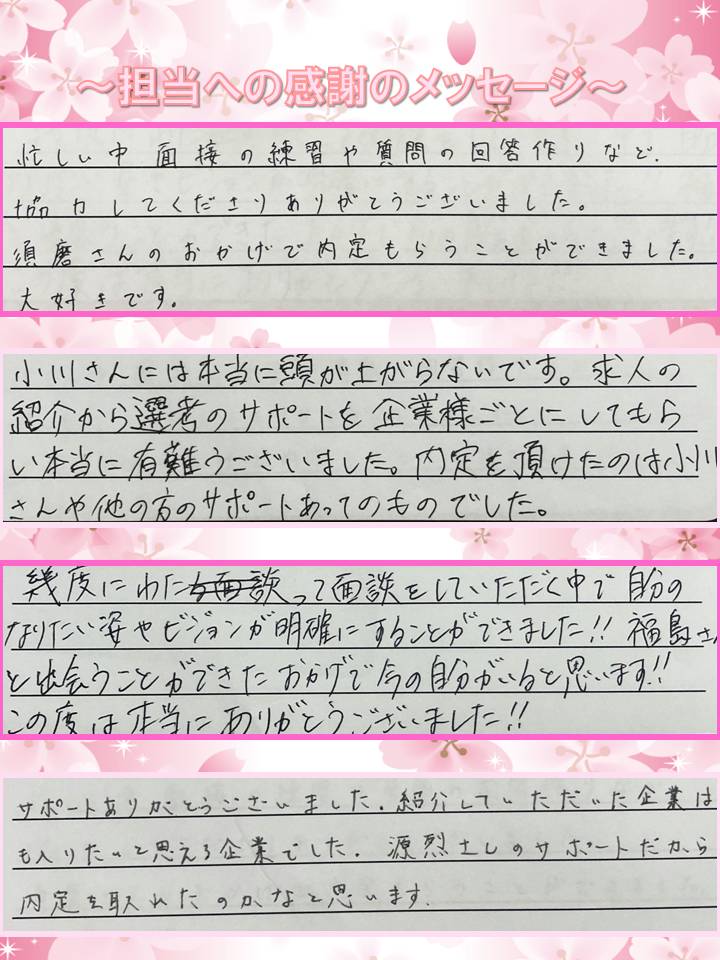 ～担当への感謝のメッセージ～
忙しい中面接の練習や質問の回答作りなど、
協力してくださりありがとうございました。
須磨さんのおかげで内定もらうことができました。
大好きです。
小川さんには本当に頭が上がらないです。求人の
紹介から選考のサポートを企業様ごとにしてもら
い本当に有難うございました。内定を頂けたのは小川
さんや他の方のサポートあってのものでした。
幾度にわたって面談をしていただく中で自分の
なりたい姿やビジョンが明確にすることができました!! 福島さん
と出会うことができたおかげで今の自分がいると思います!!
この度は本当にありがとうございました!!
サポートありがとうございました。紹介していただいた企業は
も入りたいと思える企業でした。源烈士しのサポートだから
内定を取れたのかなと思います。